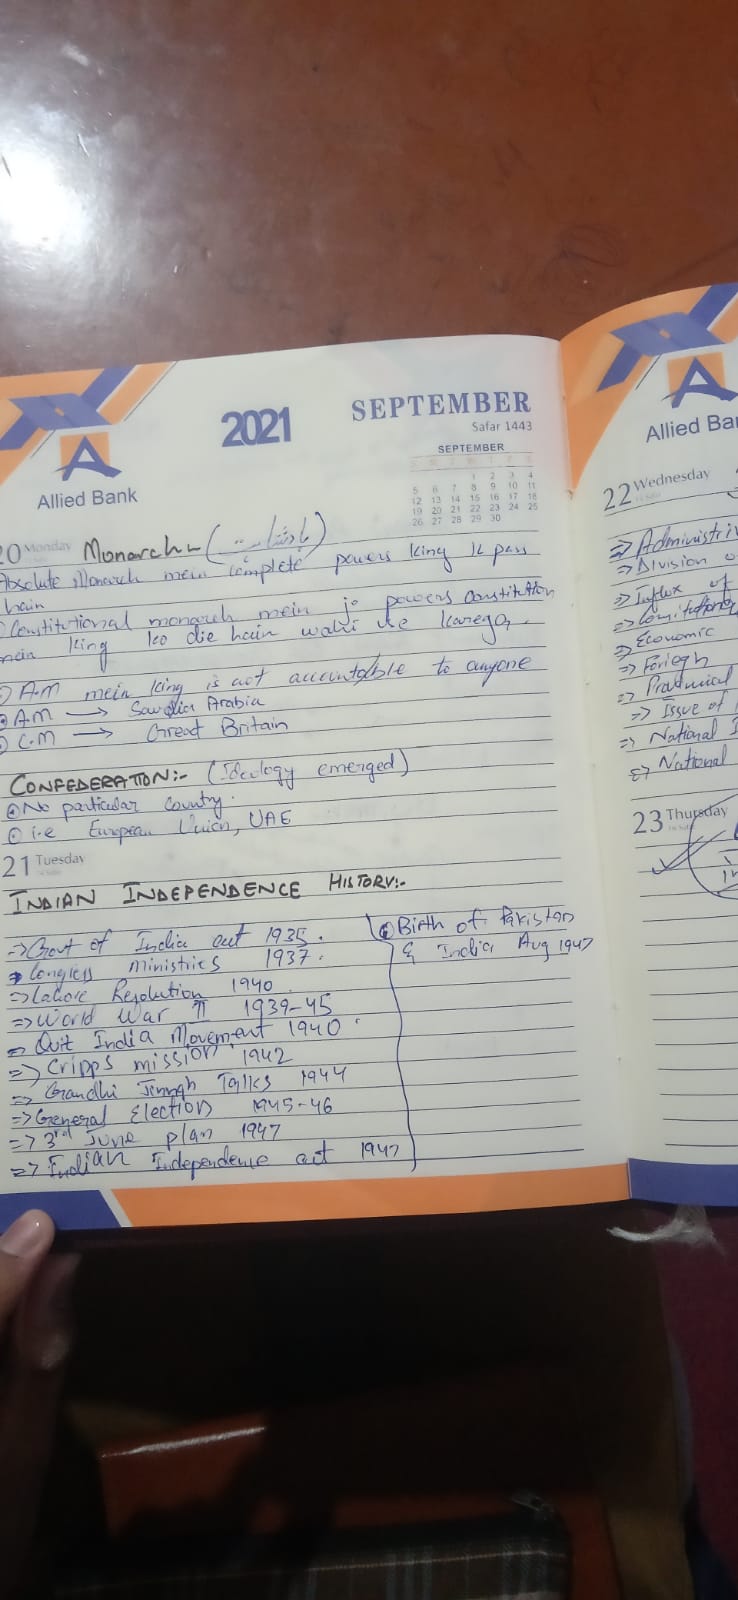 Allied Bank
2021
SEPTEMBER
Safar 1443
SEPTEMBER
1 2 3 4
5 6 7 8 9 10 11
12 13 14 15 16 17 18
19 20 21 22 23 24 25
26 27 28 29 30
20 Monday
Monarch:- (بادشاہت)
Absolute Monarch mein complete powers king k pass
hain
Constitutional monarch mein jo powers constitution
mein king ko die hain wahi use karega.
A.M mein king is not accountable to anyone
A.M → Saudia Arabia
C.M → Great Britain
CONFEDERATION:- (Ideology emerged)
No particular country.
i.e European Union, UAE
21 Tuesday
INDIAN INDEPENDENCE HISTORY:-
⇒ Govt of India act 1935.
Congress ministries 1937.
⇒ Lahore Resolution 1940
⇒ World War II 1939-45
⇒ Quit India Movement 1940
⇒ Cripps mission 1942
⇒ Gandhi Jinnah Talks 1944
⇒ General Election 1945-46
⇒ 3rd June plan 1947
⇒ Indian Independence act 1947
Birth of Pakistan
& India Aug 1947
Allied Ba
22 Wednesday
⇒ Administriv
⇒ Division o
⇒ Influx of
⇒ Economic
⇒ Foriegn
⇒ Provincial
⇒ Issue of
⇒ National I
⇒ National
23 Thursday